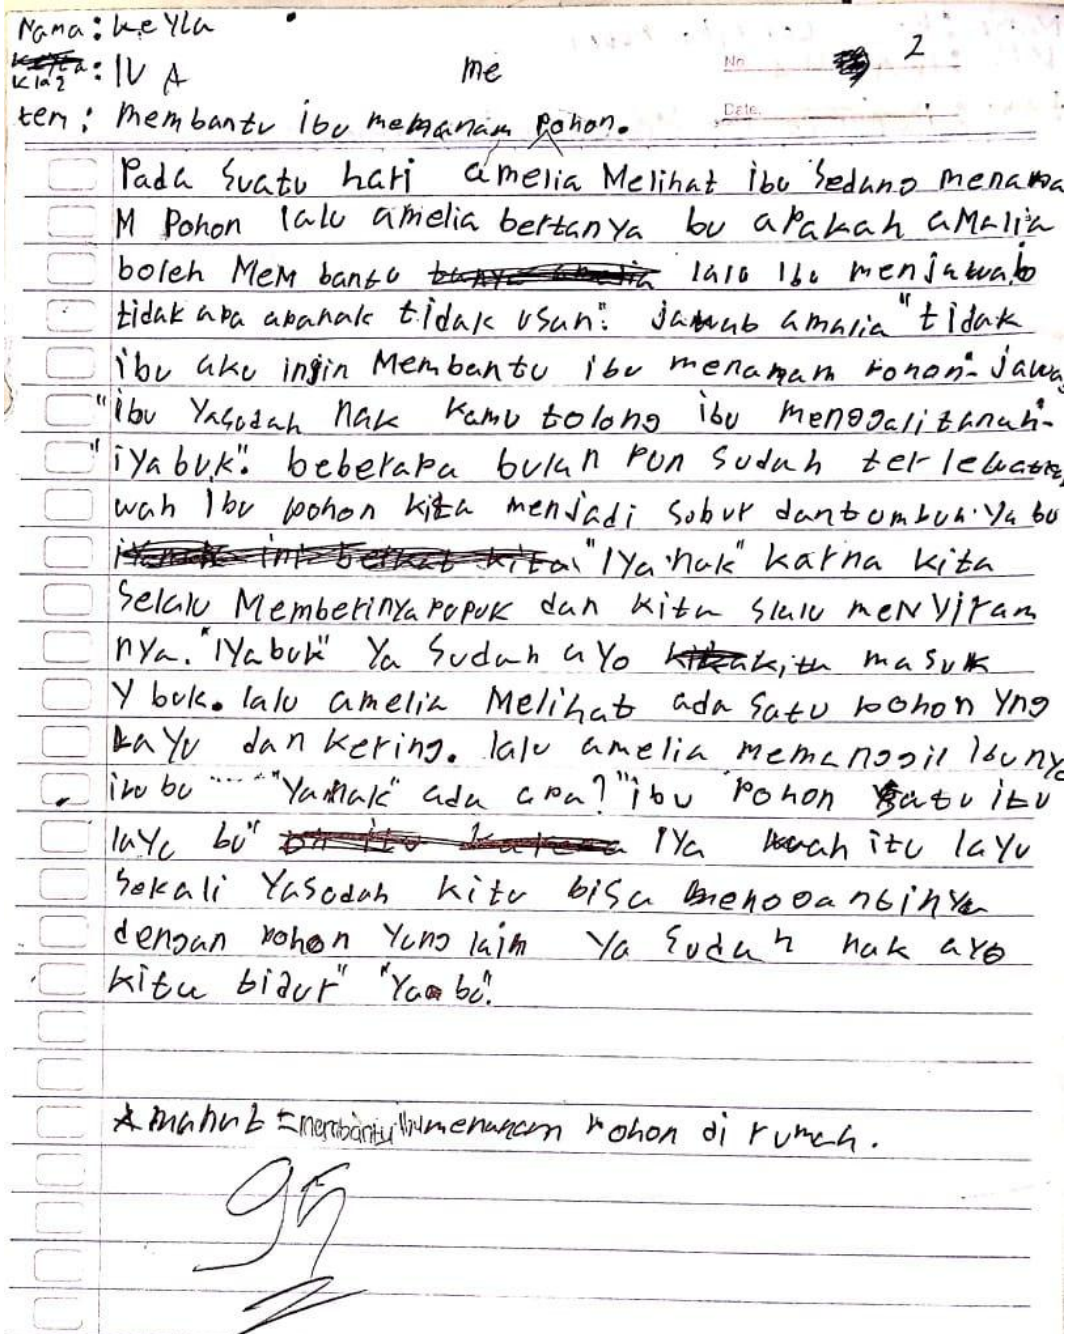 Nama: keyla
Klas: IV A
me
No.
2
Date.
tem: Membantu ibu memanam pohon.
Pada suatu hari amelia Melihat ibu Sedang menama
M Pohon lalu amelia bertanya bu apakah amalia
boleh MeM bantu lalu Ibu menjawab
tidak apa apanak tidak usah". jawab amalia "tidak
ibu aku ingin Membantu ibu menamam pohon". jawa
"ibu Yasudah nak kamu tolong ibu menggalitanah".
"iyabuk". beberapa bulan pun sudah terlewat
wah Ibu pohon kita menjadi subur dantumbuh. Ya bu
"Iya nak" karna kita
Selalu Memberinya pupuk dan kita slalu meNyiram
nya. "Iyabuk" Ya Sudah ayo kita masuk
Y buk. lalu amelia Melihat ada satu pohon yng
Layu dan kering. lalu amelia memanggil Ibuny
ibu bu ..... "Yanak" ada apa? "ibu Pohon satu itu
layu bu" Iya wah itu layu
Sekali Yasudah kita bisa menggantinya
dengan pohon Yang lain Ya Sudah nak ayo
kita bidur" "Ya bu".
Amanat = membantu ibu menanam pohon di rumah.
95